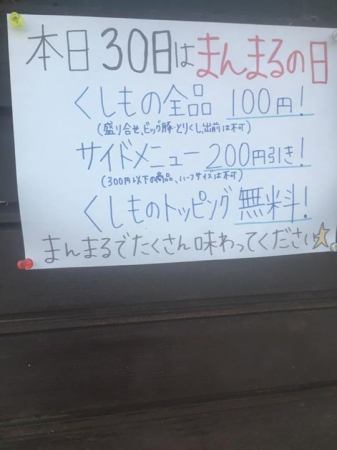 本日30日はまんまるの日
くしもの全品 100円!
(盛り合せ、ビッグ豚とりくし、出前は不可)
サイドメニュー 200円引き!
(300円以下の商品、ハーフサイズは不可)
くしものトッピング無料!
まんまるでたくさん味わってください☆